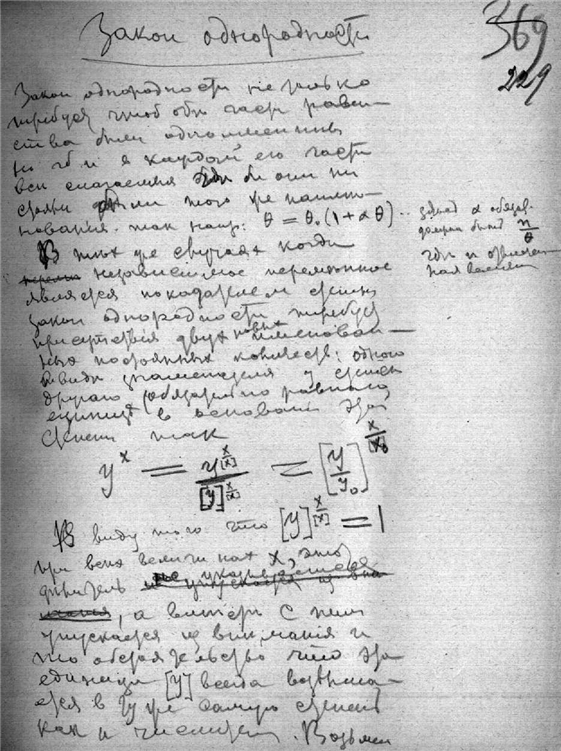 369
229
Закон однородности
Закон однородности не только
требует чтоб обе части равен-
ства были одноименны,
но чтоб и в каждой его части
все слагаемые были бы
того же наиме-
нования. так напр: θ = θ₀(1 + αθ)..
здесь α обязат.
должна быть n/θ
где n отвлечен-
В тех же случаях когда
независимое переменное
является показателем степени,
закон однородности требует
присутствия двух новых именован-
ных постоянных количеств: одного
в виде знаменателя у степени
другого (обязательно равного
единице в основании этой
степени так
y^x = y^{x/[x]} / [y]^{x/[x]} = [y/y₀]^{x/x₀}
В виду того что [y]^{x/[x]} = 1
при всех величинах x, этот
делитель
, а вместе с ним
упускается из вниманія и
то обстоятельство что эта
единица [y] всегда возвыша-
ется в ту же самую степень
как и числитель. Возьмем